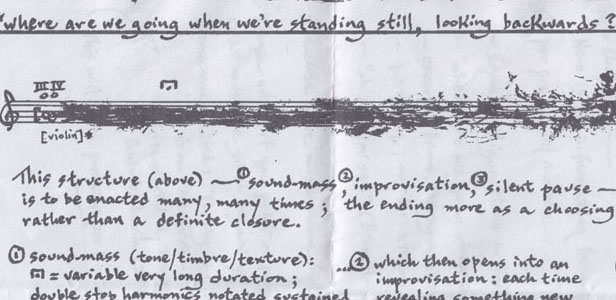 "where are we going when we're standing still, looking backwards?
III IV
[violin]*
This structure (above) — ① sound-mass, ② improvisation, ③ silent pause —
is to be enacted many, many times ; the ending more as a choosing
rather than a definite closure.
① sound-mass (tone/timbre/texture):
= variable very long duration ;
double stop harmonics notated sustained
...② which then opens into an
improvisation : each time
revealing something new